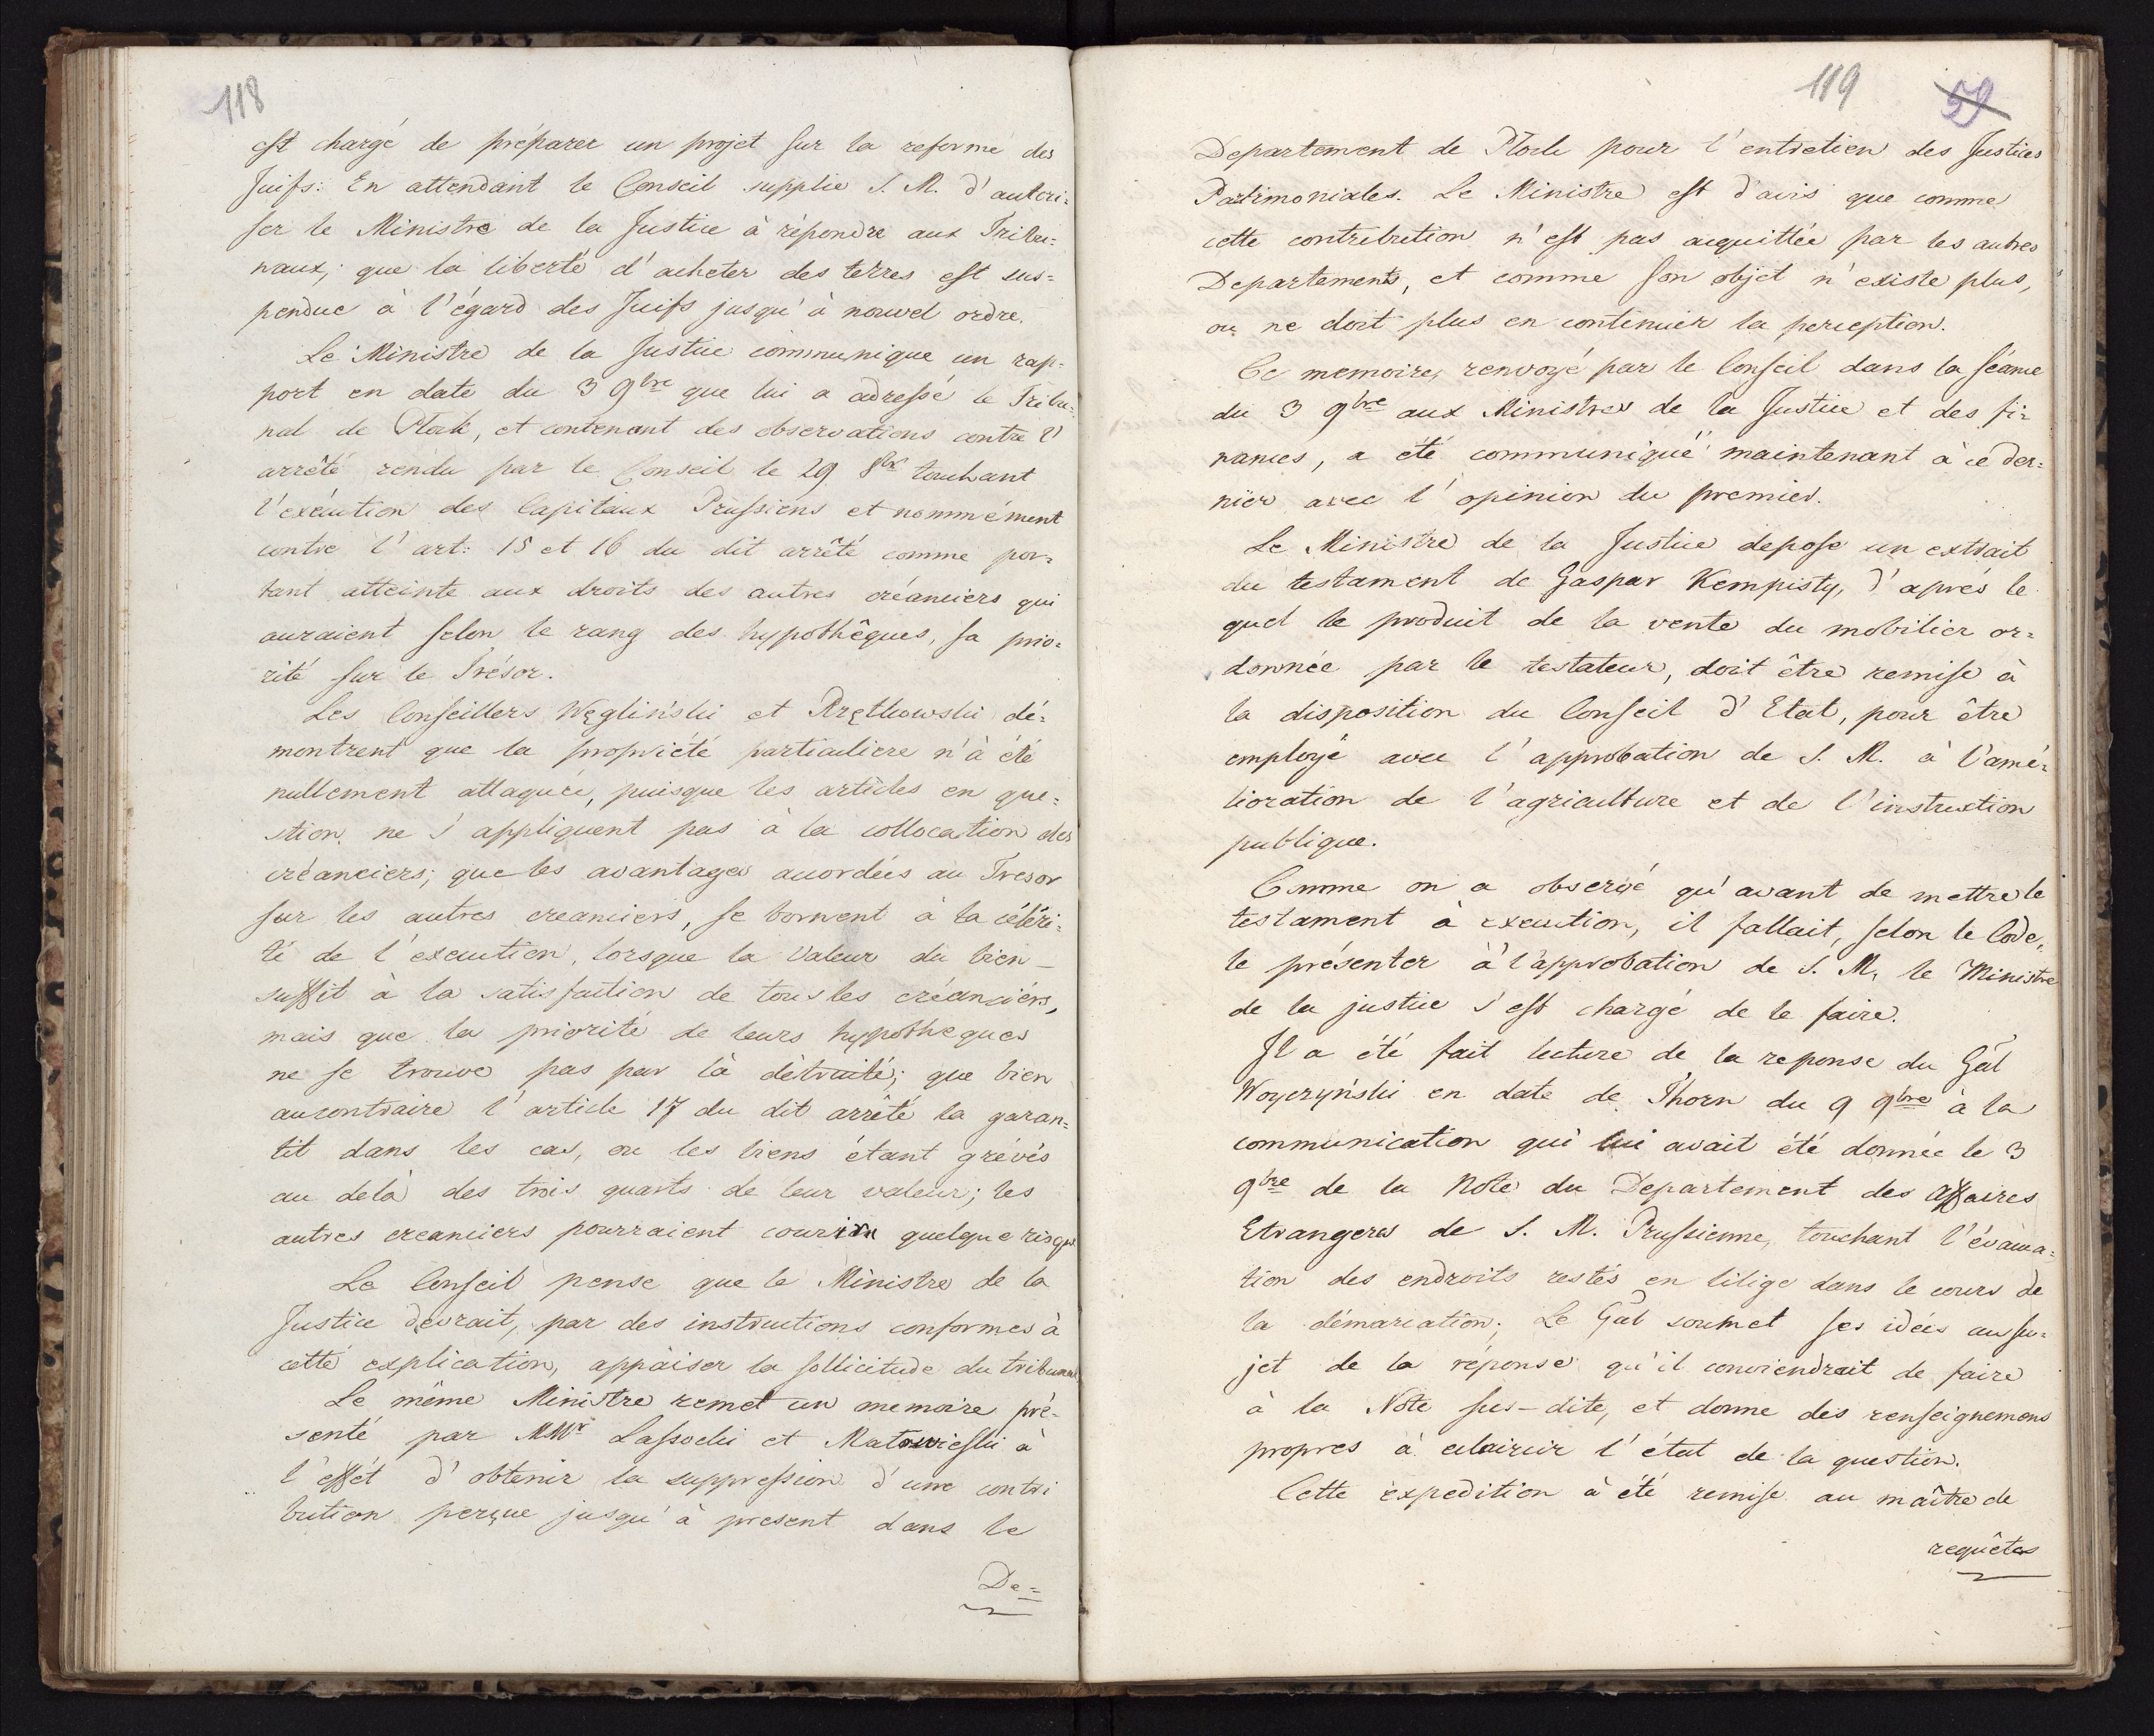 118
est chargé de préparer un projet sur la reforme des
Juifs: En attendant le Conseil supplie S. M. d'autori=
ser le Ministre de la Justice à répondre aux Tribu=
naux; que la liberté d'acheter des terres est sus=
pendue à l'égard des Juifs jusqu'à nouvel ordre.
Le Ministre de la Justice communique un rap=
port en date du 3 9bre que lui a adressé le Tribu=
nal de Plock, et contenant des observations contre l'
arrêté rendu par le Conseil le 29 8br touchant
l'exécution des Capitaux Prussiens et nommément
contre l'art: 15 et 16 du dit arrêté comme por=
tant atteinte aux droits des autres créanciers qui
auraient selon le rang des hypothêques, sa prio=
rité sur le Trésor.
Les Conseillers Węgliński et Rzętkowski dé=
montrent que la propriété particuliere n'à été
nullement attaquée, puisque les articles en que=
stion ne s'appliquent pas à la collocation des
créanciers; que les avantages accordées au Tresor
sur les autres creanciers, se bornent à la céléri=
té de l'execution, lorsque la valeur du bien
suffit à la satisfaction de tous les créanciérs,
mais que la priorité de leurs hypotheques
ne se trouve pas par là détruité; que bien
aucontraire l'article 17 du dit arrêté la garan=
tit dans les cas, ou les biens étant grévés
au delà des trois quarts de leur valeur; les
autres creanciers pourraient courir quelque risque
Le Conseil pense que le Ministre de la
Justice devrait, par des instructions conformes à
cette explication, appaiser la sollicitude du tribunal
Le même Ministre remet un memoire pré=
senté par MMr Lassocki et Matowieski à
l'effét d'obtenir la suppression d'une contri
bution perçue jusqu'à present dans le
De=
119
59
Departement de Plock pour l'entretien des Justices
Patrimoniales. Le Ministre est d'avis que comme
cette contribution n'est pas acquittée par les autres
Departements, et comme son objet n'existe plus,
on ne doit plus en continuer la perception.
Ce memoire, renvoyé par le Conseil dans la séance
du 3 9bre aux Ministres de la Justice et des fi=
nances, a été communiqué maintenant à ce der=
nier avec l'opinion du premier.
Le Ministre de la Justice depose un extrait
du testament de Gaspar Kempisty, d'aprés le
quel le produit de la vente du mobilier or=
donnée par le testateur, doit être remise à
la disposition du Conseil d'Etat, pour être
employé avec l'approbation de S. M. à l'amé=
lioration de l'agriculture et de l'instruction
publique.
Comme on a observé qu'avant de mettre le
testament à execution, il fallait, selon le Code,
le présenter à l'approbation de S. M, le Ministre
de la justice s'est chargé de le faire.
Il a été fait lecture de la reponse du Gal
Woyczyński en date de Thorn du 9 9bre à la
communication qui lui avait été donnée le 3
9bre de la Note du Departement des affaires
Etrangeres de S. M. Prussienne, touchant l'évacua=
tion des endroits restés en litige dans le cours de
la démarcation; Le Gal soumet ses idées au su=
jet de la réponse qu'il conviendrait de faire
à la Note sus-dite, et donne des renseignemens
propres à eclaircir l'état de la question.
Cette expedition à été remise au maître de
requêtes